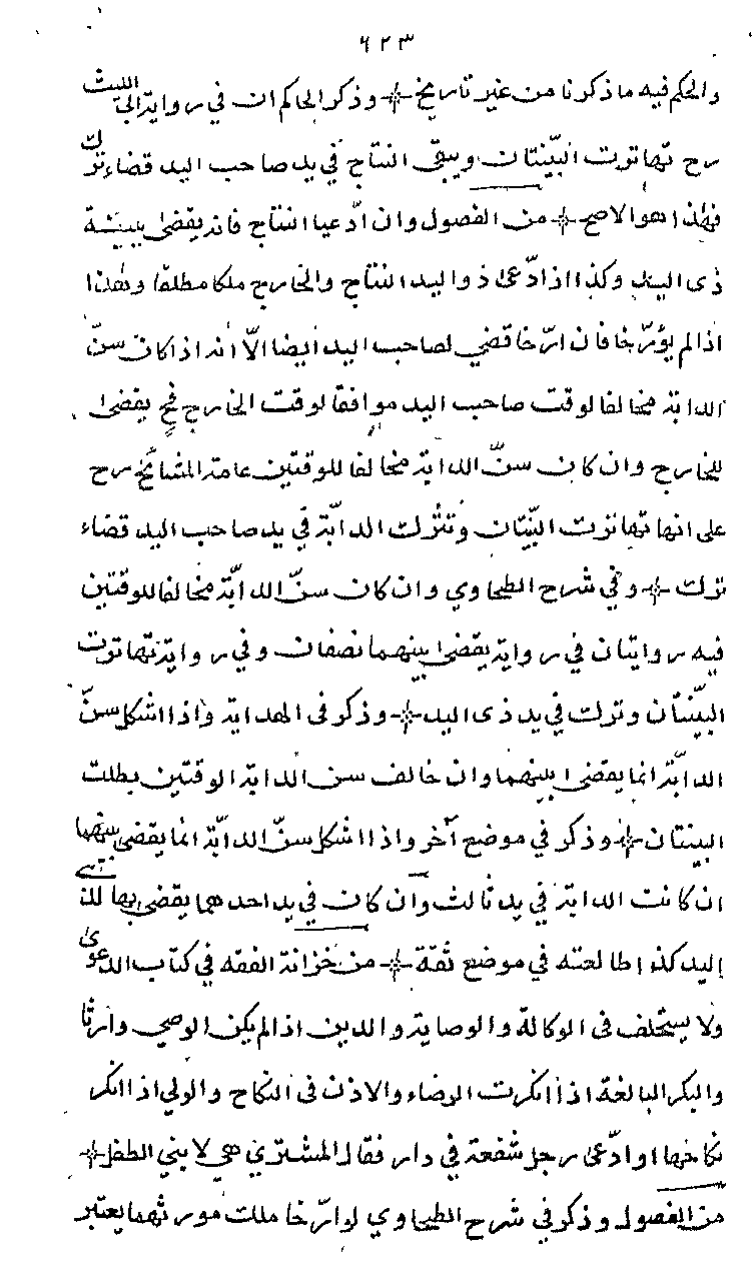 ٦٢٣
والحكم فيه ما ذكرنا من غير تاريخ ❊ وذكر الحاكم ان في رواية ابي الليث
رح تهاترت البيّنتان ويبقى النتاج في يد صاحب اليد قضاء ترك
فهذا هو الاصح ❊ من الفصول وان ادّعيا النتاج فانه يقضى ببينة
ذى اليد وكذا اذ ادّعى ذو اليد النتاج والخارج ملكا مطلقا وهذا
اذا لم يؤرّخا فان ارّخا قضي لصاحب اليد ايضا الاّ أنه اذا كان سنّ
الدابة مخالفا لوقت صاحب اليد موافقا لوقت الخارج فح يقضى
للخارج وان كان سنّ الدابة مخالفا للوقتين عامة المشائخ رح
على انها تهاترت البيّنتان وتترك الدابّة في يد صاحب اليد قضاء
ترك ❊ وفي شرح الطحاوي وان كان سنّ الدابّة مخالفا للوقتين
فيه روايتان في رواية يقضى بينهما نصفان وفي رواية تهاترت
البيّنتان وترك في يد ذى اليد ❊ وذكر فى الهداية واذا اشكل سنّ
الدابّة انما يقضى بينهما وان خالف سن الدابة الوقتين بطلت
البينتان ❊ وذكر في موضع آخر واذا اشكل سنّ الدابّة انما يقضى بينهما
ان كانت الدابة في يد ثالث وان كان في يد احدهما يقضى بها لذى
اليد كذا طالعته في موضع ثقة ❊ من خزانة الفقه في كتاب الدعوى
ولا يستحلف فى الوكالة والوصاية والدين اذا لم يكن الوصي وارثا
والبكر البالغة اذا انكرت الرضاء والاذن فى النكاح والولي اذا انكر
نكاحها او ادّعى رجل شفعة في دار فقال المشتري هي لابني الطفل ❊
من الفصول وذكر في شرح الطحاوي لو ارّخا ملك مورثهما يعتبر